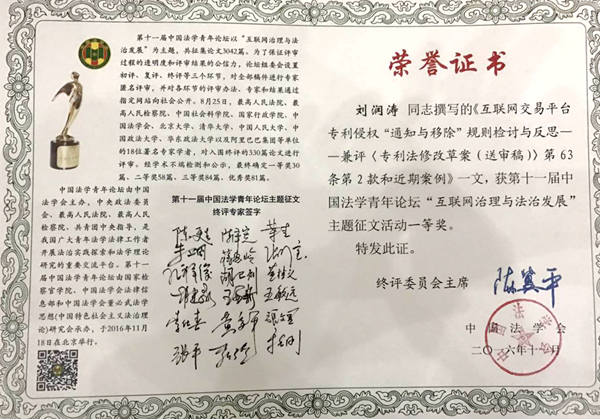 第十一届中国法学青年论坛以“互联网治理与法
治发展”为主题，共征集论文3042篇。为了保证评审
过程的透明度和评审结果的公信力，论坛组委会设置
初评、复评、终评等三个环节，对全部稿件进行专家
匿名评审，并对各环节的评审办法、专家和结果通过
指定网站向社会公开。8月25日，最高人民法院、最
高人民检察院、中国社会科学院、国家行政学院、中
国法学会、北京大学、清华大学、中国人民大学、中
国政法大学、华东政法大学以及阿里巴巴集团等单位
的18位著名专家学者，对入围终评的330篇论文进行
评审。经学术不端检测和公示，最终确定一等奖30
篇、二等奖58篇、三等奖84篇、优秀奖81篇。
中国法学青年论坛由中国
法学会主办，中央政法委员
会、最高人民法院、最高人民
检察院、共青团中央指导，是
我国广大青年法学法律工作者
开展法治实践探索和法学理论
研究的重要交流平台。第十一
届中国法学青年论坛由国家检
察官学院、中国法学会法律信
息部和中国法学会董必武法学
思想(中国特色社会主义法治理
论)研究会承办，于2016年11月
18日在北京举行。
第十一届中国法学青年论坛主题征文
终评专家签字
荣誉证书
刘润涛 同志撰写的《互联网交易平台
专利侵权“通知与移除”规则检讨与反思——
——兼评〈专利法修改草案（送审稿）〉第 63
条第 2 款和近期案例》一文，获第十一届中
国法学青年论坛“互联网治理与法治发展”
主题征文活动一等奖。
特发此证。
终评委员会主席 陈冀平
中国法学会
二〇一六年十一月